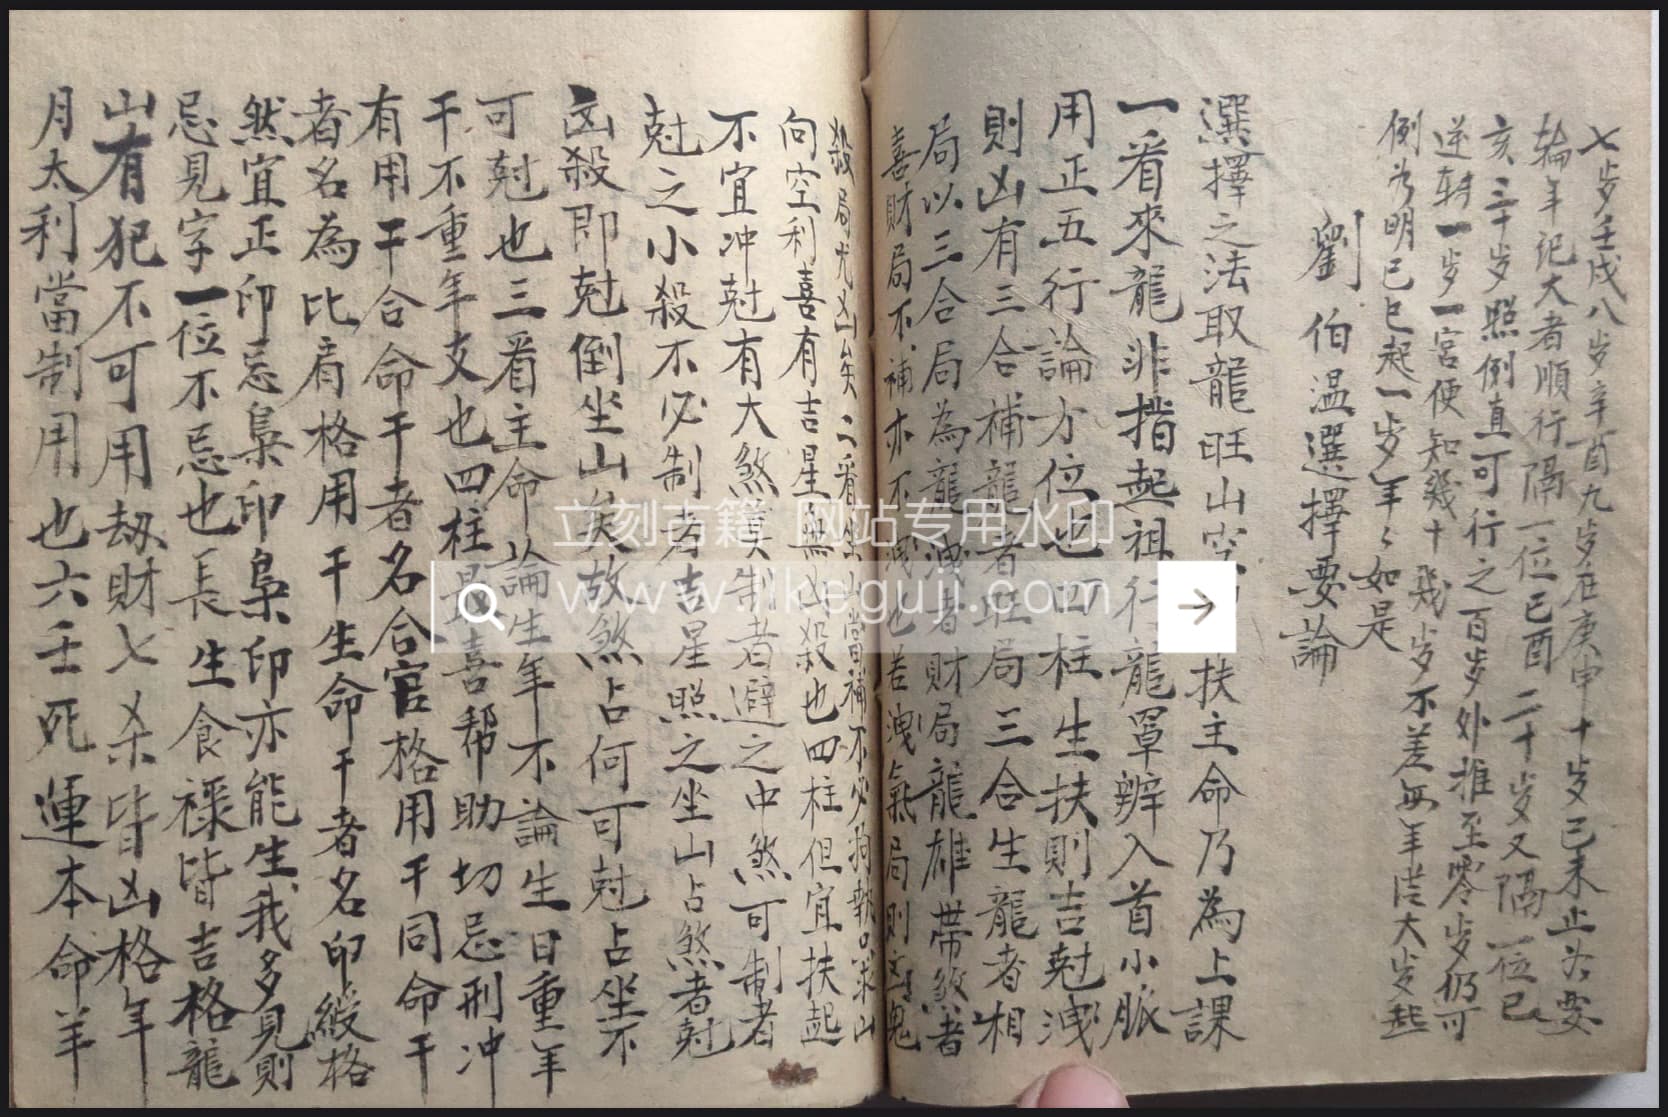 七歩壬戌八歩辛酉九歩在庚申十歩己未止若要
輪年記大者順行隔一位己酉二十歩又隔一位已
亥三十歩照例直可行之百歩外推至零歩仍可
逆轉一歩一宮便知幾十幾歩不差無年从大歩起
例為明已已起一歩年々如是
劉伯温選擇要論
選擇之法取龍旺山空扶主命乃為上課
一看來龍非指起祖行龍單辨入首小脈
用正五行論方位也四柱生扶則吉尅洩
則凶有三合補龍者旺局三合生龍者相
局以三合局為龍洩者財局龍雄帶煞者
喜財局不補亦不洩也若洩氣局則凶鬼
殺局尤凶矣二看坐山當補不必拘執只求山
向空利喜有吉星無凶殺也四柱但宜扶起
不宜冲尅有大煞莫制者避之中煞可制者
尅之小殺不必制者吉星照之坐山占煞者尅
凶殺即尅倒坐山矣故煞占何可尅占坐不
可尅也三看主命論生年不論生日重年
干不重年支也四柱最喜帮助切忌刑冲
有用干合命干者名合官格用干同命干
者名為比肩格用干生命干者名印綬格
然宜正印忌梟印梟印亦能生我多見則
忌見字一位不忌也長生食祿皆吉格龍
山有犯不可用刼財七杀皆凶格年
月太利當制用也六壬死運本命羊
立刻古籍 网站专用水印
www.likeguji.com